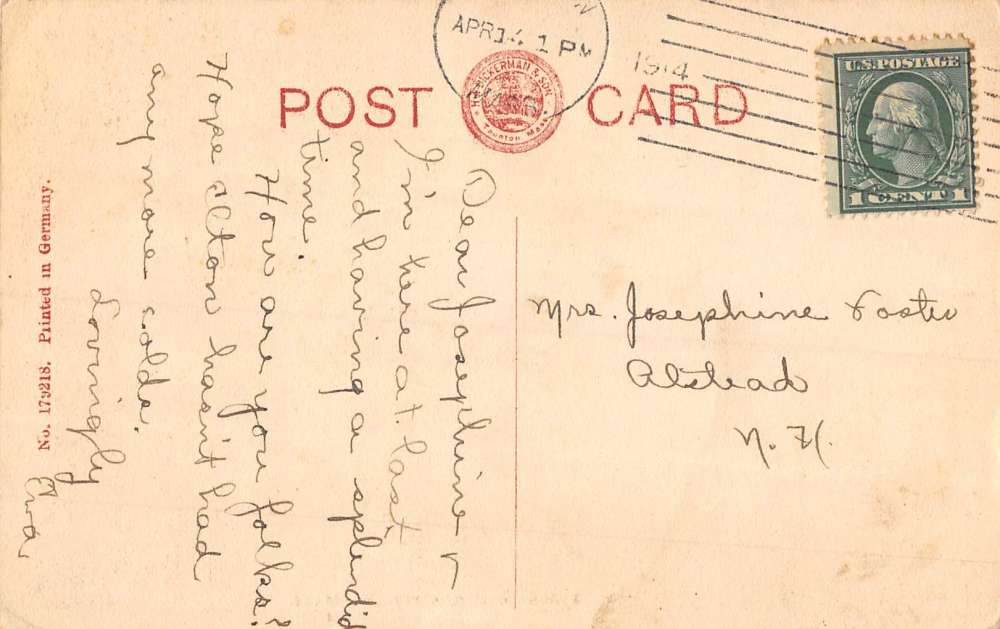 APR 14. 1 PM
1914
MASS.
U.S. POSTAGE
1 CENT 1
POST CARD
H. A. DICKERMAN & SON
Taunton Mass.
Dear Josephine
I'm here at last
and having a splendid
time.
How are you folks?
Hope Alton hasn't had
any more colds.
Lovingly
Elva.
Mrs. Josephine Foster
Alstead
N. H.
No. 179218. Printed in Germany.